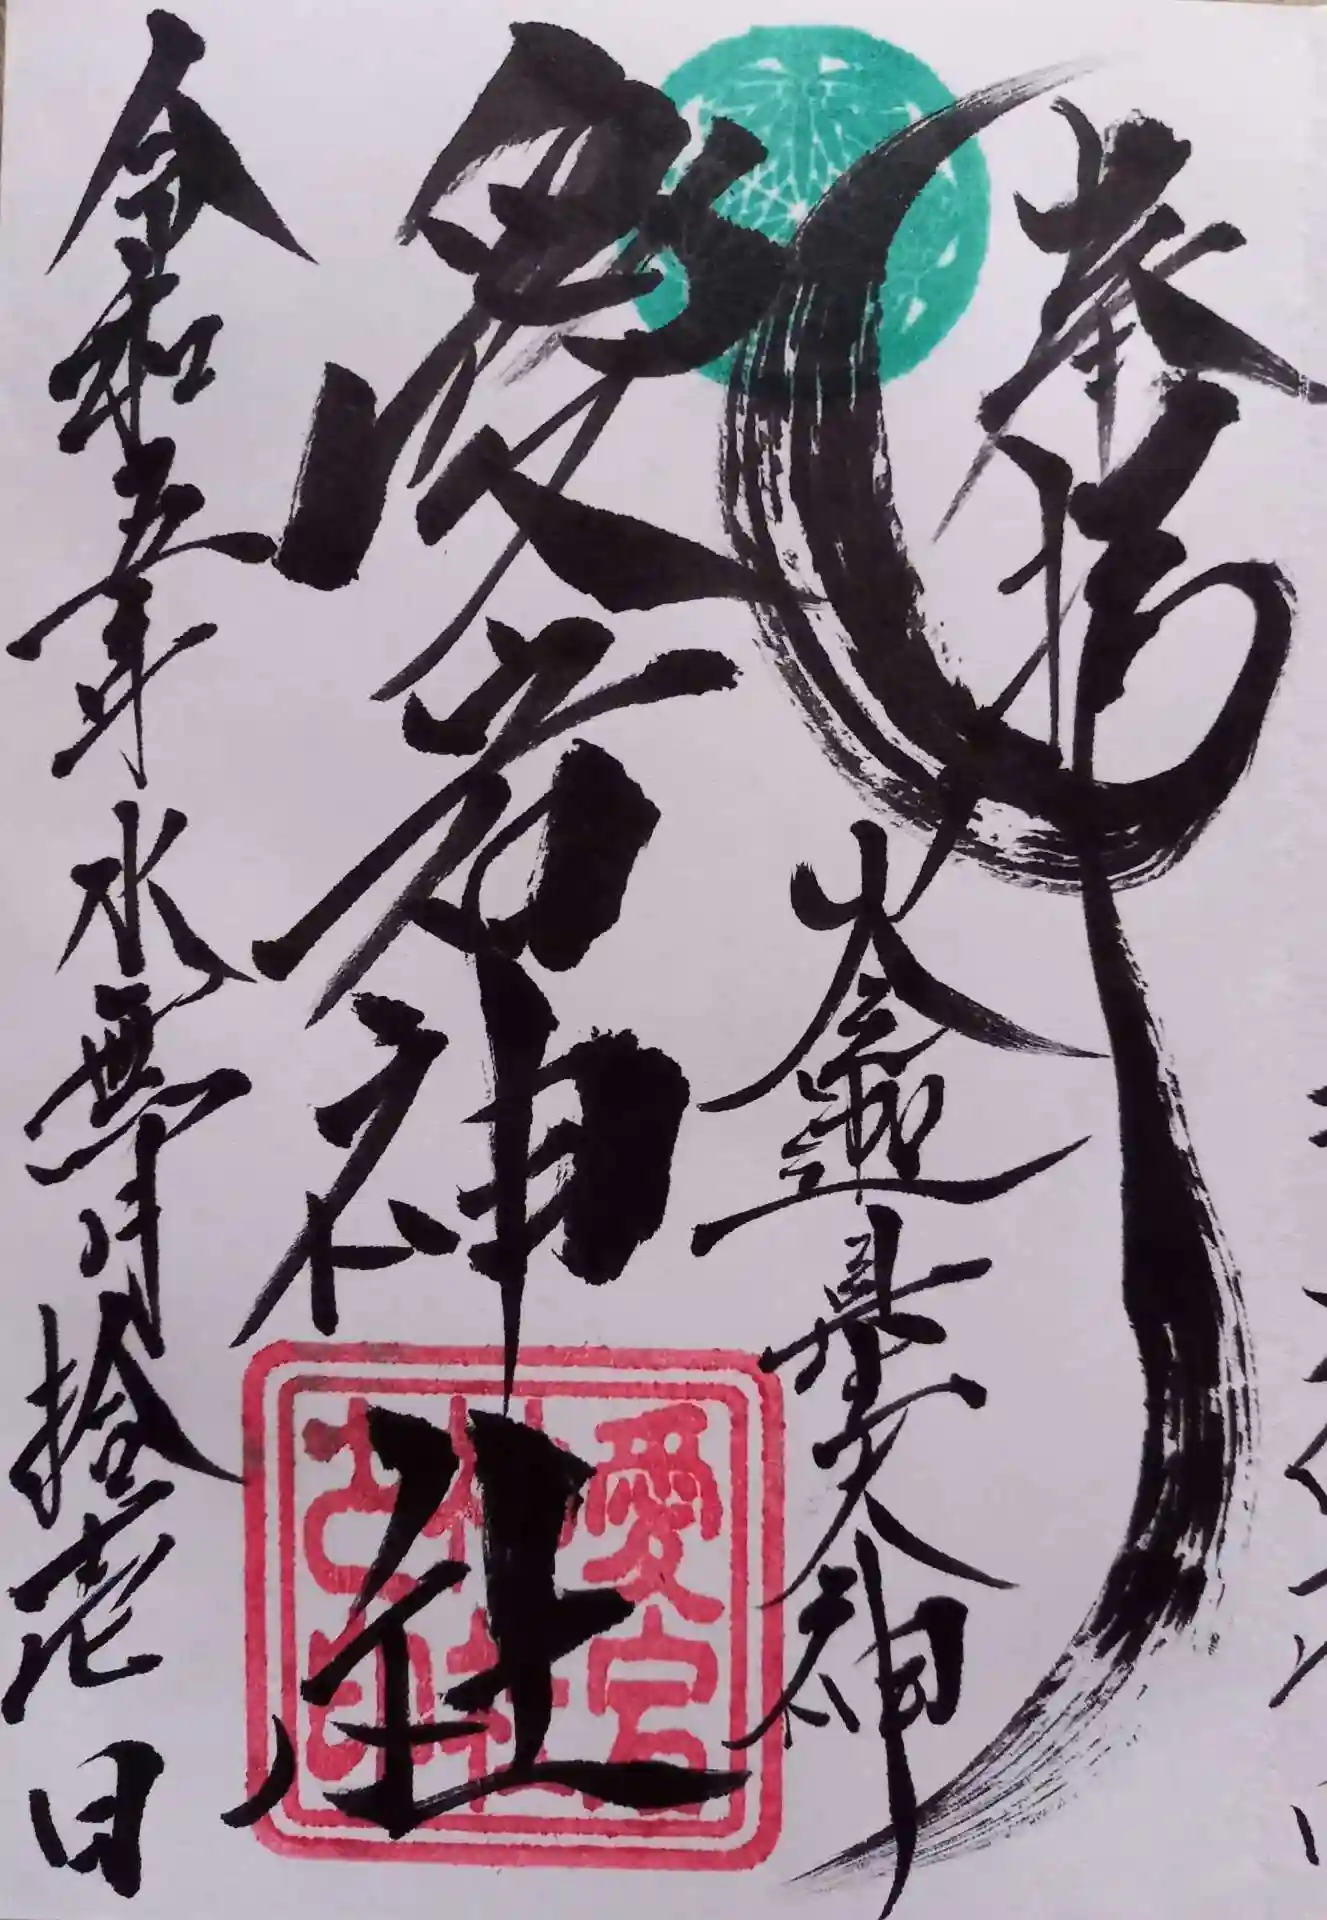 奉拝
大神
愛宕神社
令和五年水無月拾壱日
愛宕
神社
之印